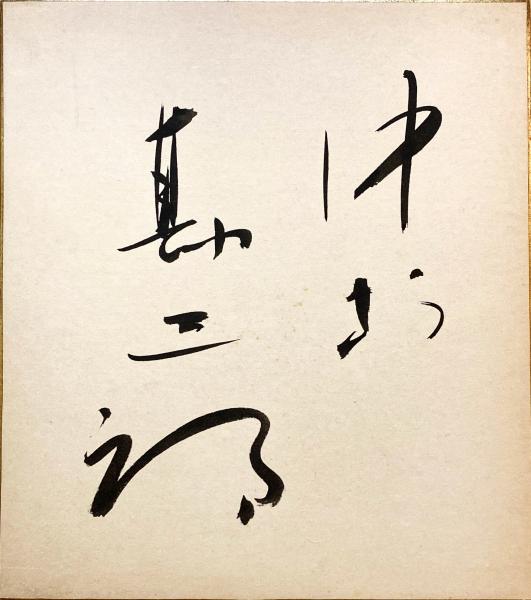 中村
勘三郎